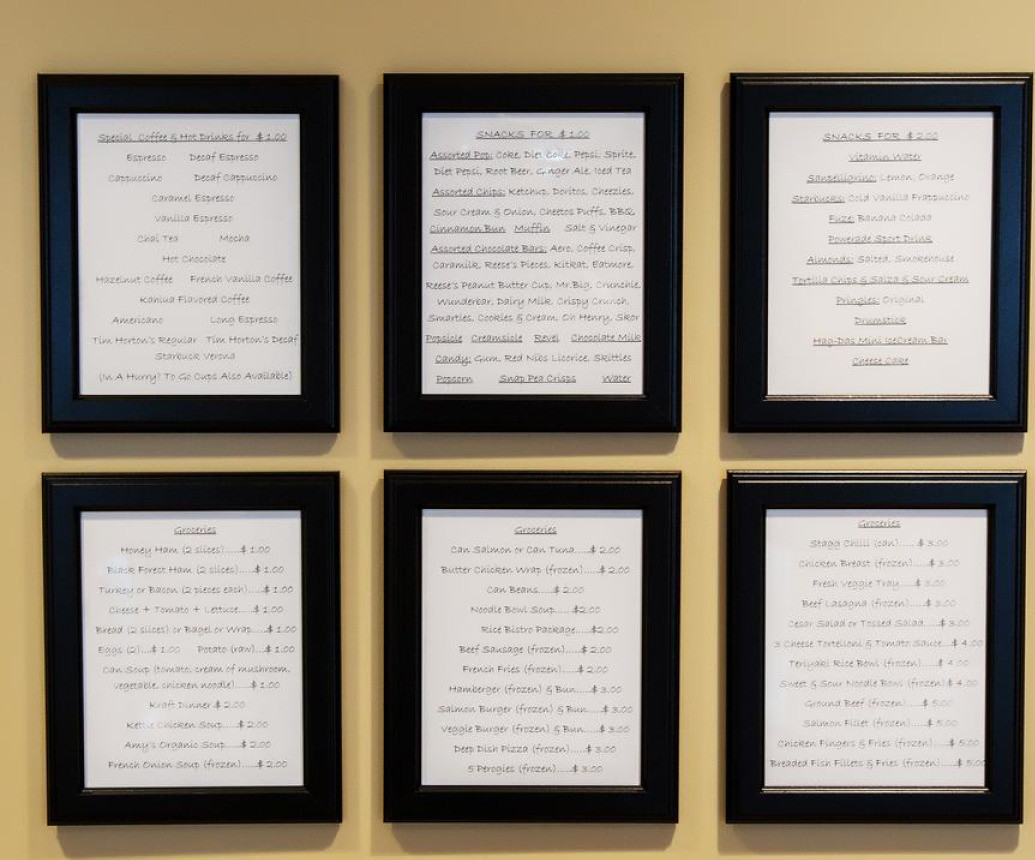 Special Coffee & Hot Drinks for $ 1.00
Espresso Decaf Espresso
Cappuccino Decaf Cappuccino
Caramel Espresso
Vanilla Espresso
Chai Tea Mocha
Hot Chocolate
Hazelnut Coffee French Vanilla Coffee
Kahlua Flavored Coffee
Americano Long Espresso
Tim Horton's Regular Tim Horton's Decaf
Starbuck Verona
(In A Hurry? To Go Cups Also Available)
SNACKS FOR $ 1.00
Assorted Pop: Coke, Diet Coke, Pepsi, Sprite,
Diet Pepsi, Root Beer, Ginger Ale, Iced Tea
Assorted Chips: Ketchup, Doritos, Cheezies,
Sour Cream & Onion, Cheetos Puffs, BBQ,
Cinnamon Bun Muffin Salt & Vinegar
Assorted Chocolate Bars: Aero, Coffee Crisp,
Caramilk, Reese's Pieces, Kitkat, Eatmore,
Reese's Peanut Butter Cup, Mr.Big, Crunchie,
Wunderbar, Dairy Milk, Crispy Crunch,
Smarties, Cookies & Cream, Oh Henry, Skor
Popsicle Creamsicle Revel Chocolate Milk
Candy: Gum, Red Nibs Licorice, Skittles
Popcorn Snap Pea Crisps Water
SNACKS FOR $ 2.00
Vitamin Water
Sanpelligrino: Lemon, Orange
Starbucks: Cold Vanilla Frappuccino
Fuze: Banana Colada
Powerade Sport Drink
Almonds: Salted, Smokehouse
Tortilla Chips & Salza & Sour Cream
Pringles: Original
Drumstick
Hag-Das Mini IceCream Bar
Cheese Cake
Groceries
Honey Ham (2 slices).....$ 1.00
Black Forest Ham (2 slices).....$ 1.00
Turkey or Bacon (2 pieces each)....$ 1.00
Cheese + Tomato + Lettuce.....$ 1.00
Bread (2 slices) or Bagel or Wrap.....$ 1.00
Eggs (2)...$ 1.00 Potato (raw)...$ 1.00
Can Soup (tomato, cream of mushroom,
vegetable, chicken noodle).....$ 1.00
Kraft Dinner $ 2.00
Kettle Chicken Soup.....$ 2.00
Amy's Organic Soup.....$ 2.00
French Onion Soup (frozen)....$ 2.00
Groceries
Can Salmon or Can Tuna.....$ 2.00
Butter Chicken Wrap (frozen)....$ 2.00
Can Beans.....$ 2.00
Noodle Bowl Soup.....$2.00
Rice Bistro Package.....$2.00
Beef Sausage (frozen)....$ 2.00
French Fries (frozen)....$ 2.00
Hamberger (frozen) & Bun....$ 3.00
Salmon Burger (frozen) & Bun....$ 3.00
Veggie Burger (frozen) & Bun....$ 3.00
Deep Dish Pizza (frozen)....$ 3.00
5 Perogies (frozen)....$ 3.00
Groceries
Stagg Chilli (can)..... $ 3.00
Chicken Breast (frozen)....$ 3.00
Fresh Veggie Tray.....$ 3.00
Beef Lasagna (frozen)....$ 3.00
Cesar Salad or Tossed Salad....$ 3.00
3 Cheese Tortelloni & Tomato Sauce...$ 4.00
Teriyaki Rice Bowl (frozen)....$ 4.00
Sweet & Sour Noodle Bowl (frozen) $ 4.00
Ground Beef (frozen).....$ 5.00
Salmon Fillet (frozen)....$ 5.00
Chicken Fingers & Fries (frozen)....$ 5.00
Breaded Fish Fillets & Fries (frozen)....$ 5.00